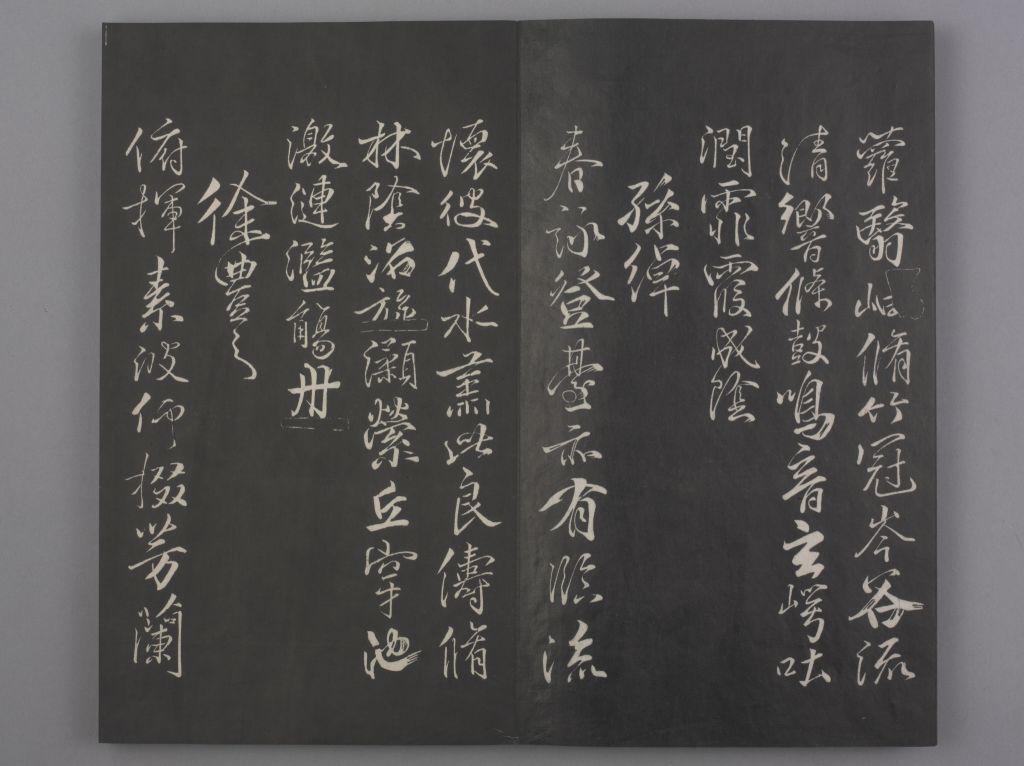 蘿翳岫脩竹冠岑谷流
清響條鼓鳴音玄崿吐
潤霏霧成陰
孫綽
春詠登臺亦有臨流
懷彼伐木肅此良儔脩
林陰沼旋瀨縈丘穿池
激湍連濫觴丗
徐豐之
俯揮素波仰掇芳蘭